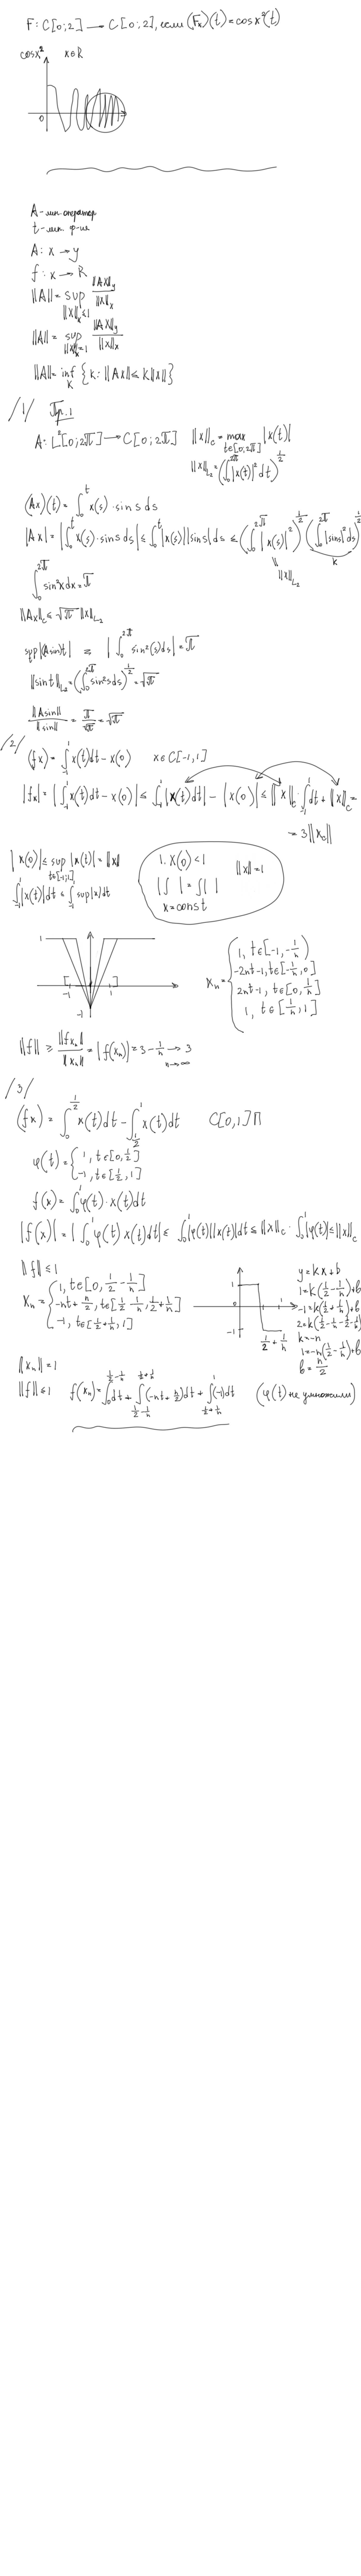 F: C[0;2] → C[0;2], если (Fx)(t) = cos x²(t)
cos x² x∈R
0
A - лин. оператор
t - лин. ф-ия
A: x → y
f: x → R
||A|| = sup_{||x||_x ≤ 1} ||Ax||_y / ||x||_x
||A|| = sup_{||x||_x = 1} ||Ax||_y / ||x||_x
||A|| = inf_K {K: ||Ax|| ≤ K||x||}
/1/ Пр.1
A: L²[0;2π] → C[0;2π] ||x||_c = max_{t∈[0;2π]} |x(t)|
||x||_{L_2} = (∫_0^{2π} |x(t)|² dt)^{1/2}
(Ax)(t) = ∫_0^t x(s)·sin s ds
|Ax| = |∫_0^t x(s)·sin s ds| ≤ ∫_0^t |x(s)||sin s| ds ≤ (∫_0^{2π} |x(s)|²)^{1/2} (∫_0^{2π} |sin s|² ds)^{1/2}
||x||_{L_2} K
∫_0^{2π} sin²x dx = π
||Ax||_c ≤ √π ||x||_{L_2}
sup|(A sin)t| = |∫_0^{2π} sin²(s) ds| = π
||sin t||_{L_2} = (∫_0^{2π} sin² s ds)^{1/2} = √π
||A sin|| / ||sin|| = π/√π = √π
/2/ (fx) = ∫_{-1}^1 x(t)dt - x(0) x∈C[-1,1]
|fx| = |∫_{-1}^1 x(t)dt - x(0)| ≤ ∫_{-1}^1 |x(t)dt| - |x(0)| ≤ ||x||_c · ∫_{-1}^1 dt + ||x||_c =
= 3||x_c||
|x(0)| ≤ sup_{t∈[-1;1]} |x(t)| = ||x||
∫_{-1}^1 |x(t)|dt ≤ ∫_{-1}^1 sup|x|dt
1. x(0) < 1 ||x|| = 1
|∫ | = ∫| |
x = const
1
-1 1
-1
x_n = { 1, t∈[-1, -1/n)
-2nt-1, t∈[-1/n, 0]
2nt-1, t∈[0, 1/n]
1, t∈[1/n, 1]
||f|| ≥ ||fx_n|| / ||x_n|| = |f(x_n)| = 3 - 1/n →_{n→∞} 3
/3/
(fx) = ∫_0^{1/2} x(t)dt - ∫_{1/2}^1 x(t)dt C[0,1]
φ(t) = { 1, t∈[0, 1/2]
-1, t∈[1/2, 1]
f(x) = ∫_0^1 φ(t)·x(t)dt
|f(x)| = |∫_0^1 φ(t) x(t)dt| ≤ ∫_0^1 |φ(t)||x(t)|dt ≤ ||x||_c · ∫_0^1 |φ(t)| ≤ ||x||_c
||f|| ≤ 1
x_n = { 1, t∈[0, 1/2 - 1/n]
-nt + n/2, t∈[1/2 - 1/n, 1/2 + 1/n]
-1, t∈[1/2 + 1/n, 1]
1
0 1
-1
1/2 + 1/n
y = kx + b
1 = k(1/2 - 1/n) + b
-1 = k(1/2 + 1/n) + b
2 = k(1/2 - 1/n - 1/2 - 1/n)
k = -n
1 = -n(1/2 - 1/n) + b
b = n/2
||x_n|| = 1
||f|| ≤ 1 f(x_n) = ∫_0^{1/2 - 1/n} dt + ∫_{1/2 - 1/n}^{1/2 + 1/n} (-nt + n/2)dt + ∫_{1/2 + 1/n}^1 (-1)dt (φ(t) не умножили)